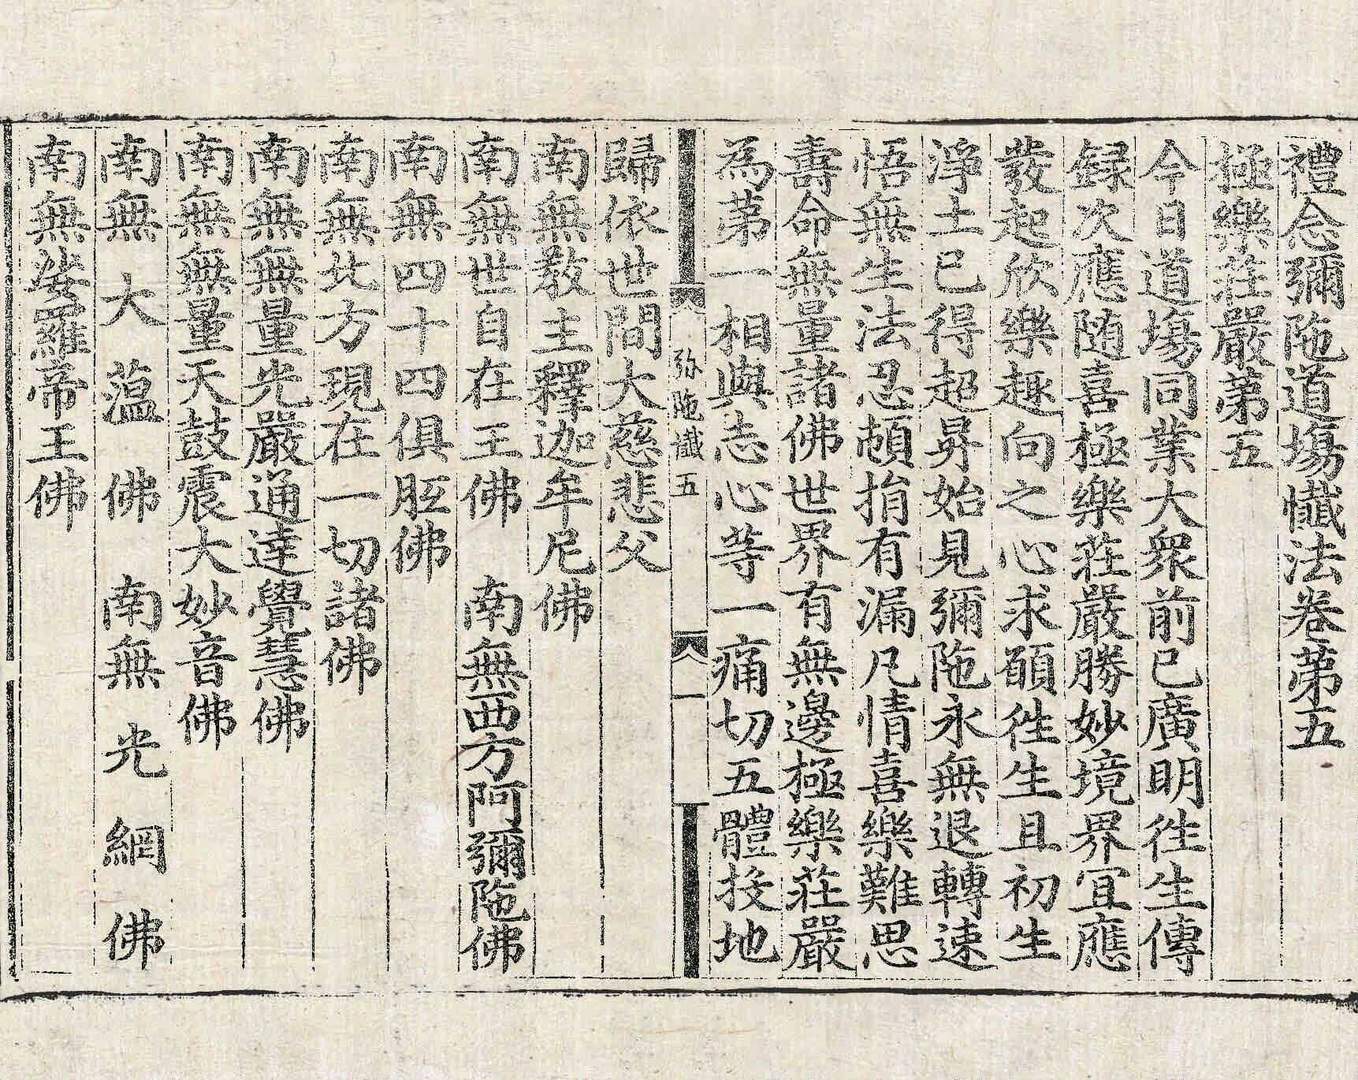 禮念彌陁道塲懺法卷第五
極樂莊嚴第五
今日道塲同業大衆前已廣明徃生傳
録次應随喜極樂莊嚴勝妙境界冝應
發起欣樂趣向之心求願徃生且初生
淨土已得超昇始見彌陁永無退轉速
悟無生法忍頓捐有漏凡情喜樂難思
壽命無量諸佛世界有無邊極樂莊嚴
為第一相與志心等一痛切五體投地
弥陁懺五 一
歸依世間大慈悲父
南無敎主釋迦牟尼佛
南無世自在王佛 南無西方阿彌陁佛
南無四十四俱胝佛
南無北方現在一切諸佛
南無無量光嚴通達覺慧佛
南無無量天鼓震大妙音佛
南無大蕰佛 南無光網佛
南無娑羅帝王佛